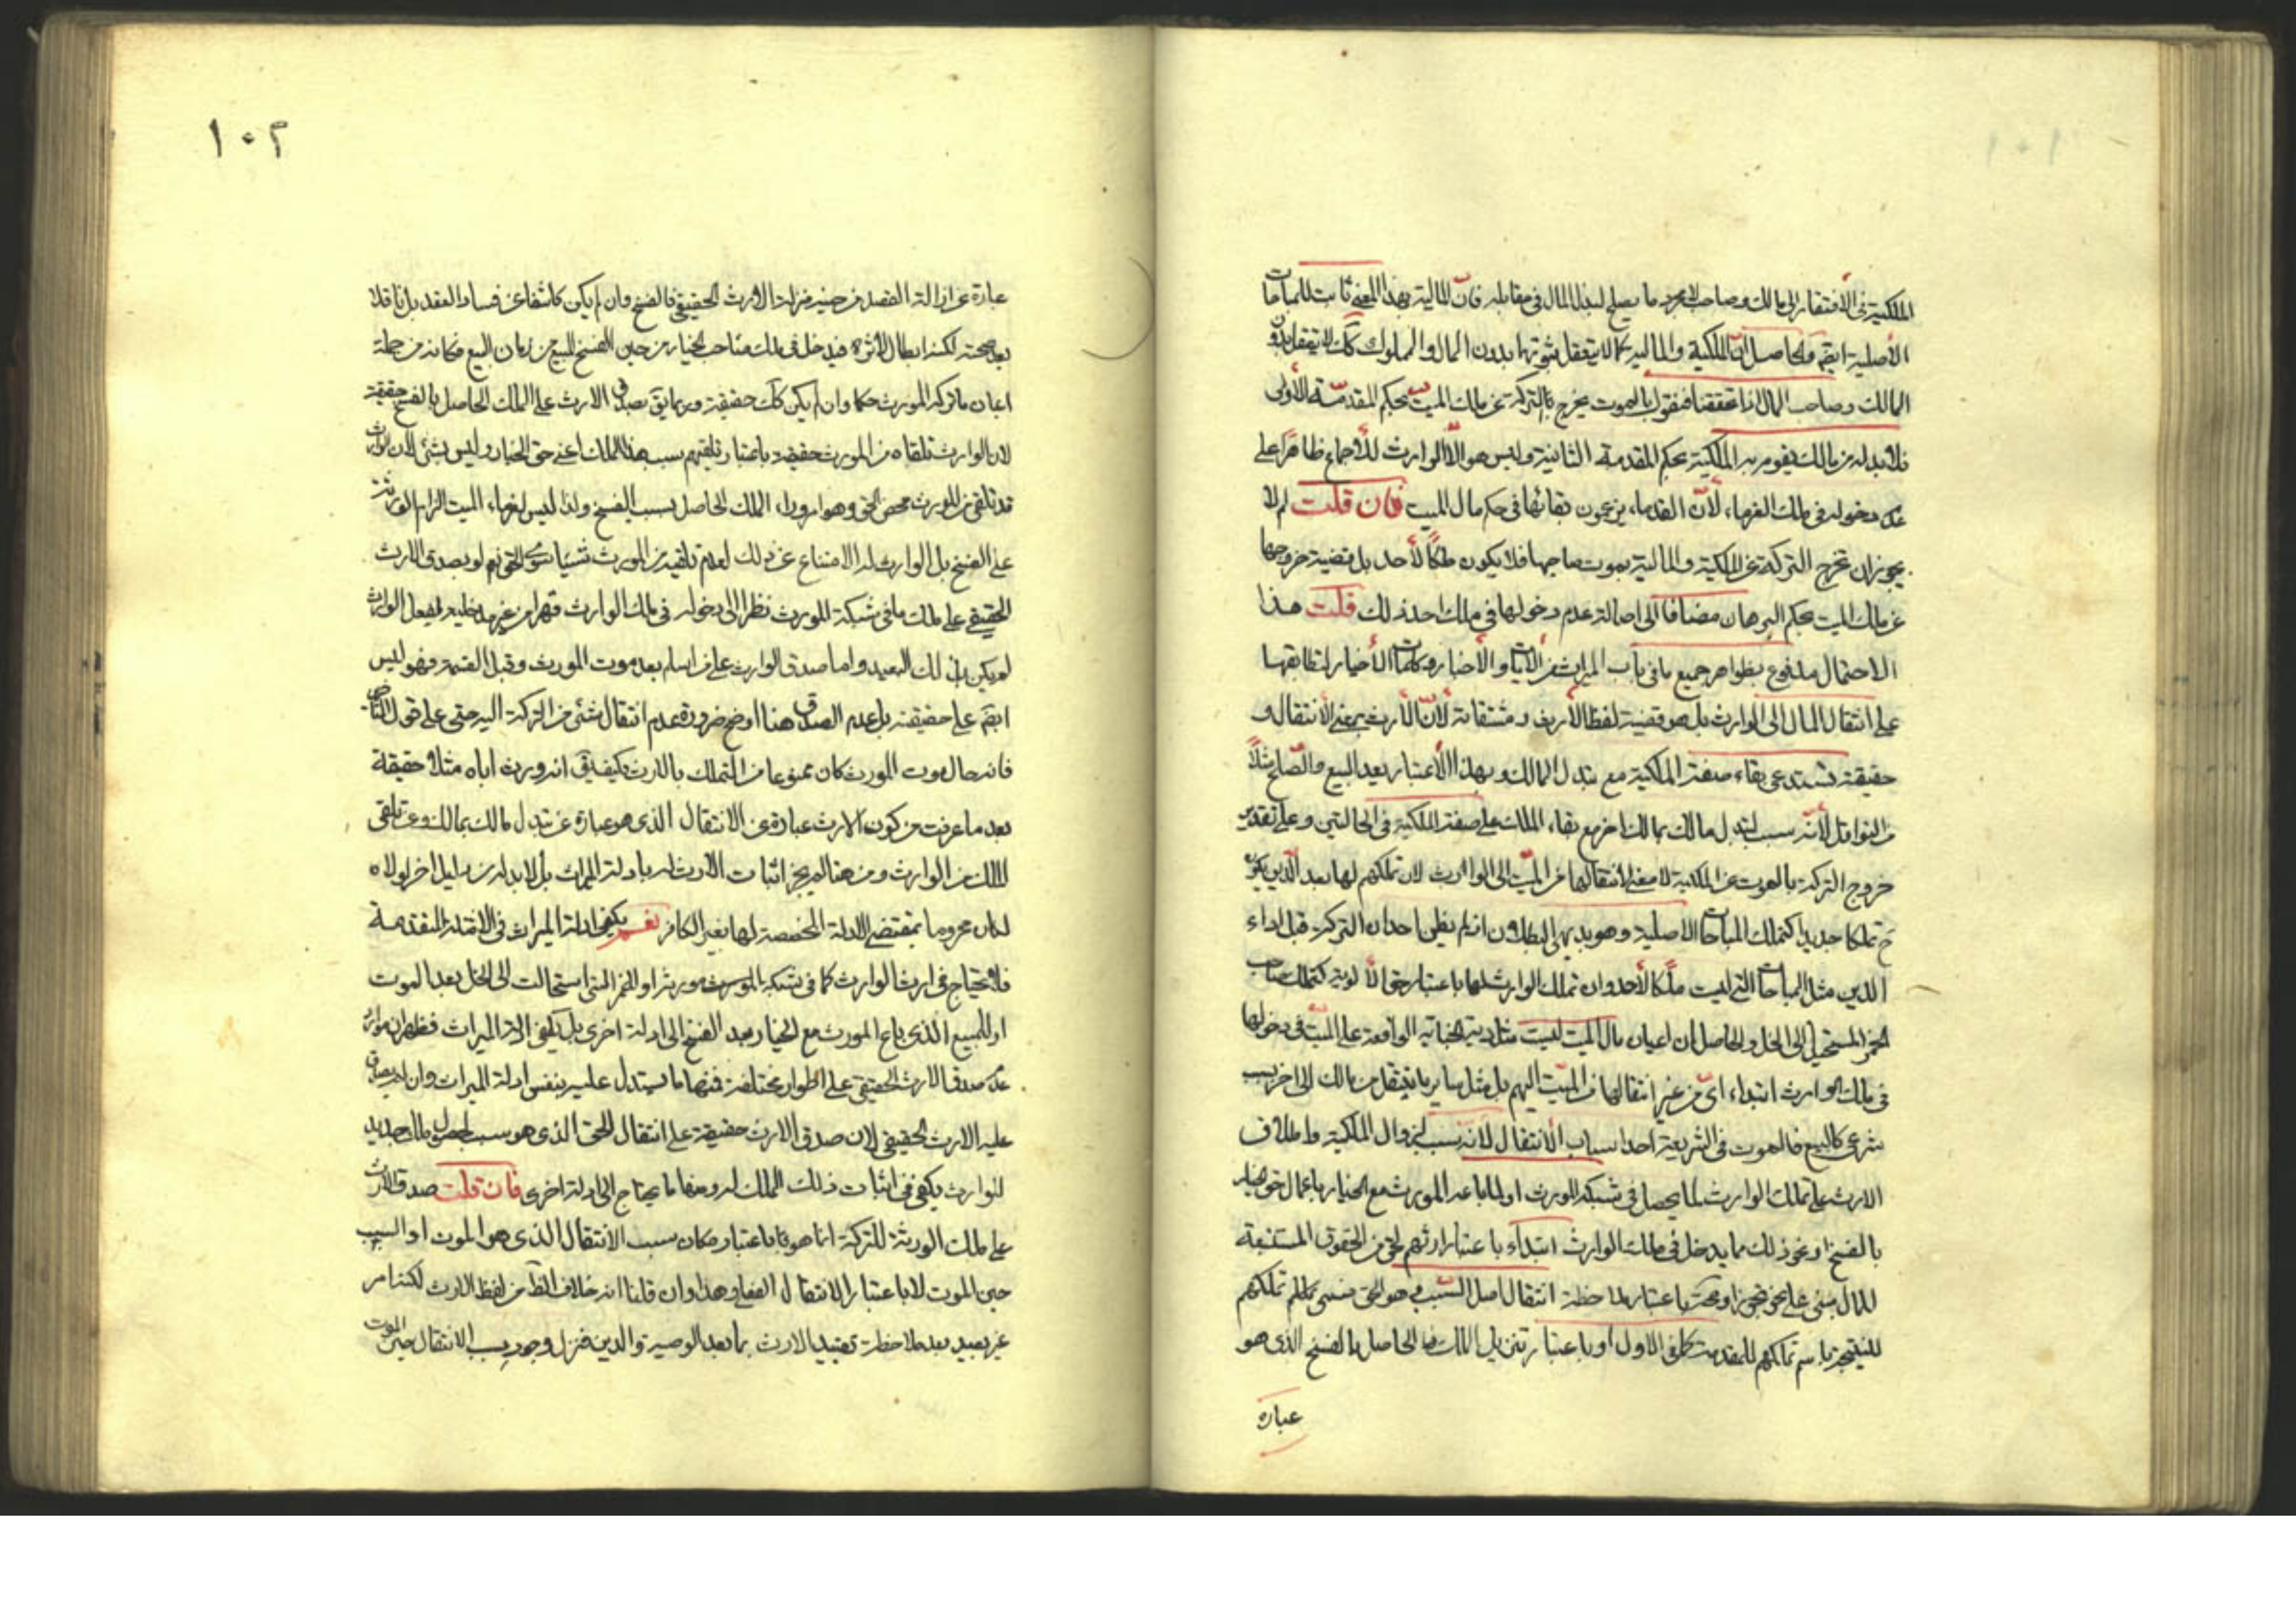 الملكية فى الافتقار الى مالك وصاحب لا مجرد ما يصلح لبذل المال فى مقابله فان المالية بهذا المعنى ثابت للمباحات
الأصلية ايضم والحاصل ان الملكية والمالية كما لا يتعقل ثبوتها بدون المال والمملوك كك لا يتعقل بدون
المالك وصاحب المال اذا تحققنا فنقول بالموت يخرج التركة عن ملك الميت بحكم المقدمة الأولى
فلا بد له من مالك يقوم به الملكية بحكم المقدمة الثانية وليس هو الا الوارث للأجماع ظاهرا على
عدم دخوله فى ملك الغرماء لأن القدماء يزعمون بقائها فى حكم مال الميت فان قلت لم لا
يجوز ان تخرج التركة عن الملكية والمالية بموت صاحبها فلا يكون ملكا لأحد بل قضية خروجها
عن ملك الميت بحكم البرهان مضافا الى اصالة عدم دخولها فى ملك احد ذلك قلت هذا
الاحتمال مدفوع بظواهر جميع ما فى باب الميراث من الايات والأخبار وكلمات الأخيار لتطابقها
على انتقال المال الى الوارث بل هو قضية لفظ الأرث ومشتقاته لأن الأرث بمعنى الأنتقال و
حقيقته تستدعى بقاء صفة الملكية مع تبدل المالك وبهذا الأعتبار يعد البيع والصلح مثلا
من النواقل لأنه سبب لتبدل مالك بمالك اخر مع بقاء الملك على صفة الملكية فى الحالتين وعلى تقدير
خروج التركة بالموت عن الملكية لا معنى لانتقالها عن الميت الى الوارث لان تملكهم لها بعد الدين يكون
ح تملكا جديدا كتملك المباحات الاصلية وهو بديهى البطلان اذ لم يظن احد ان التركة قبل اداء
الدين مثل المباحات التى ليست ملكا لأحد وان تملك الوارث لها باعتبار حق الأولوية كتملك صاحب
الخمر المستحيل الى الخل والحاصل ان اعيان مال الميت ليست مثل دية الجناية الواقعة على الميت فى دخولها
فى ملك الوارث ابتداء اى من غير انتقالها من الميت اليهم بل مثل ساير ما ينتقل من مالك الى اخر بسبب
شرعى كالبيع فالموت فى الشريعة احد اسباب الأنتقال لا انه سبب لزوال الملكية واطلاق
الارث على تملك الوارث لما يحصل فى شبكة المورث او لما باعه المورث مع الخيار باعمال حق الخيار
بالفسخ او نحو ذلك مما يدخل فى ملك الوارث ابتداء باعتبار ارثهم لحق من الحقوق المستتبعة
للمال مبنى على نحو تجوز او صحة باعتبار ملاحظة انتقال اصل السبب وهو الحق فسمى تملكهم
للنتيجة باسم تملكهم للمقدمة كما فى الاول او باعتبار تنزيل الملك الحاصل بالفسخ الذى هو
عبارة
١٠٢
عبارة عن ازالة العقد من حينه منزلة الأرث الحقيقى فالفسخ وان لم يكن كاشفا عن فساد العقد بل ناقلا
بعد صحته لكنه ابطال لأثره فيدخل فى ملك صاحب الخيار من حين الفسخ المبيع من زمان البيع فكانه من جملة
اعيان ما تركه المورث حكما وان لم يكن كك حقيقة وربما يق بصدق الارث على الملك الحاصل بالفسخ حقيقة
لان الوارث تلقاه من المورث حقيقة باعتبار تلقيهم سبب هذا الملك اعنى حق الخيار وليس بشئ لان الوارث
قد تلقى من المورث محض الحق وهو امر وراء الملك الحاصل بسبب الفسخ ولذا ليس لغرماء الميت الزام الورثة
على الفسخ بل الوارث له الامتناع عن ذلك لعدم تلقيه من المورث شيئا سوى الحق نعم لو بصدق الارث
الحقيقى على ملك ما فى شبكة المورث نظرا الى دخوله فى ملك الوارث قهرا من غير مدخلية لفعل الوارث
لم يكن بذلك البعيد واما صدق الوارث على من اسلم بعد موت المورث وقبل القسمة فهو ليس
ايضم على حقيقته بل عدم الصدق هنا اوضح ضرورة عدم انتقال شئ من التركة اليه حتى على قول
فانه حال موت المورث كان ممنوعا من التملك بالارث فكيف يق انه ورث اباه مثلا حقيقة
بعد ما عرفت من كون الارث عبارة عن الانتقال الذى هو عبارة عن تبدل مالك بمالك وعن تلقى
الملك من الوارث ومن هنا لم يجز اثبات الأرث له بادلة الميراث بل لا بد له من دليل اخر لولاه
لكان محروما بمقتضى الادلة المخصصة لها بغير الكافر نعم يكفى ادلة الميراث فى الامثلة المتقدمة
فلا يحتاج فى ارث الوارث كما فى شبكة المورث مورثه او الخمر التى استحالت الى الخل بعد الموت
او للمبيع الذى باع المورث مع الخيار بعد الفسخ الى ادلة اخرى بل يكفى ادلة الميراث فظهر ان موارد
عدم صدق الارث الحقيقى على اطوار مختلفة فمنها ما يستدل عليه بنفس ادلة الميراث وان لم يصدق
عليه الارث الحقيقى لان صدق الارث حقيقة على انتقال الحق الذى هو سبب لحصول ملك جديد
للوارث يكفى فى اثبات ذلك الملك له ومنها ما يحتاج الى ادلة اخرى فان قلت صدق الارث
على ملك الورثة للتركة انما هو باعتبار مكان سبب الانتقال الذى هو الموت او السبب
حين الموت لا باعتبار الانتقال الفعلى وهذا وان قلنا انه خلاف الظ من لفظ الارث لكنه امر
غير بعيد بعد ملاحظة تقييد الارث بما بعد الوصية والدين فنزل وجود سبب الانتقال حين الموت